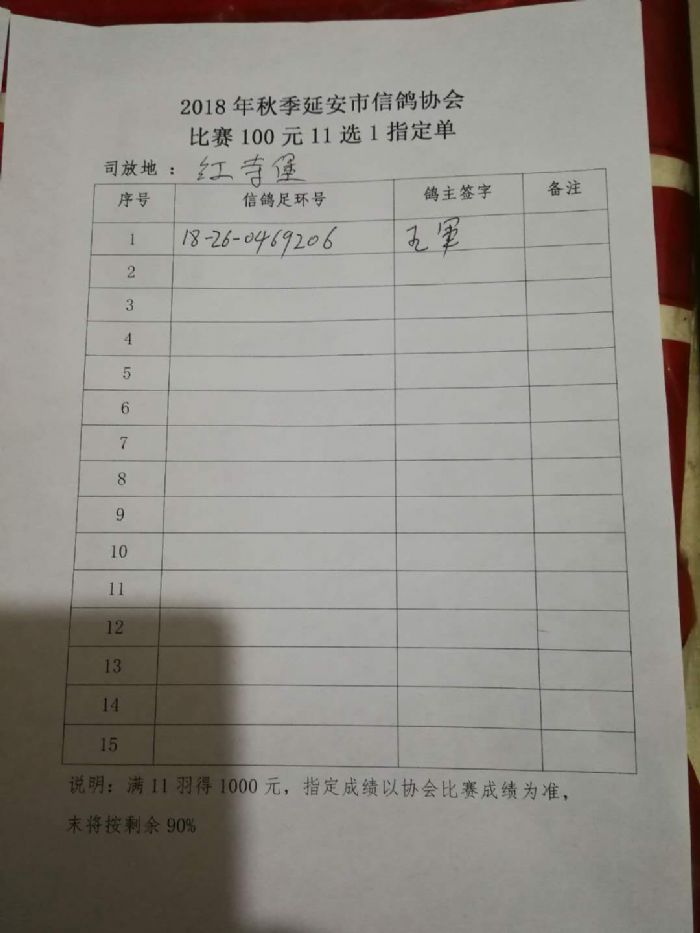 2018 年秋季延安市信鸽协会
比赛 100 元 11 选 1 指定单
司放地 ： 红寺堡
序号 信鸽足环号 鸽主签字 备注
1 18-26-0469206 王军
2
3
4
5
6
7
8
9
10
11
12
13
14
15
说明：满 11 羽得 1000 元，指定成绩以协会比赛成绩为准，
末将按剩余 90%